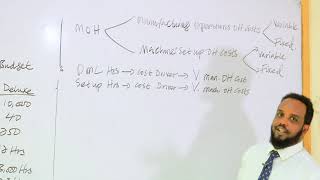 MOH
Manufacturing Operations OH Costs
Variable
Fixed
Machine Set up OH Costs
Variable
Fixed
DML Hrs → Cost Driver → V. man. OH Cost
Set up Hrs → Cost Driver → V. OH Costs
Budget
Deluxe
10,000
40
250
Hrs
Hrs